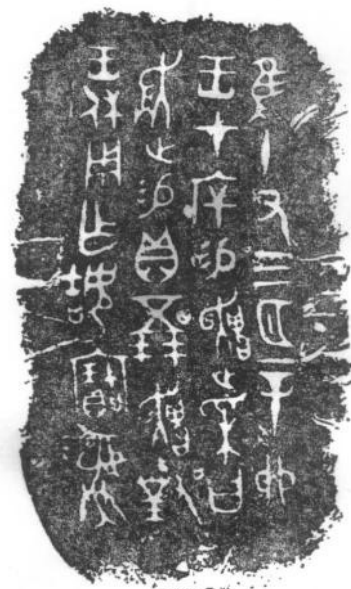 隹十又三月辛卯
王才易趞采曰
易貝五朋趞對
王休用乍姞寶彝